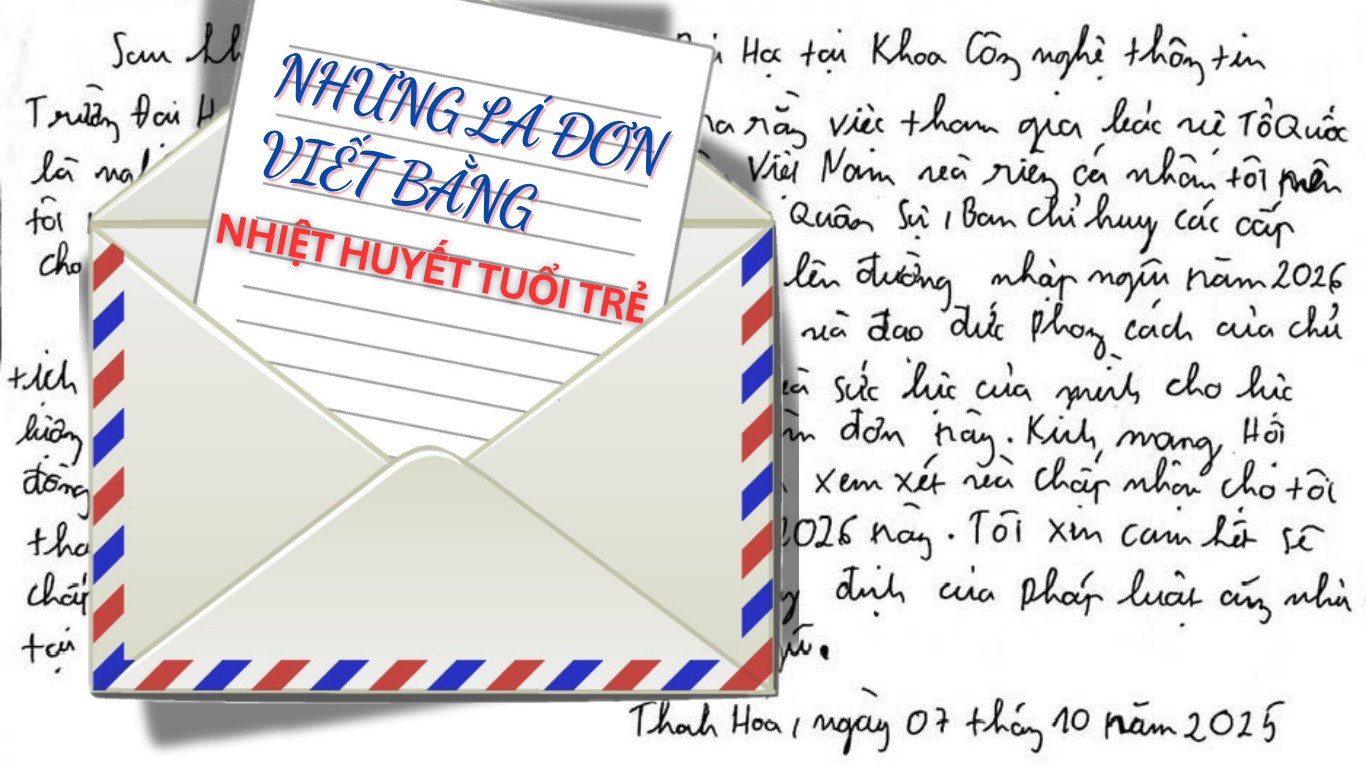 NHỮNG LÁ ĐƠN
VIẾT BẰNG
NHIỆT HUYẾT TUỔI TRẺ
Sau Học tại Khoa Công nghệ thông tin
Trường Đại rằng việc tham gia bảo vệ Tổ Quốc
là Việt Nam và riêng cá nhân tôi nên
tôi Quân Sự, Ban chỉ huy các cấp
cho lên đường nhập ngũ năm 2026
và đạo đức phong cách của chủ
tịch sức lực của mình cho lực
lượng đơn này. Kính mong Hội
đồng xem xét và chấp nhận cho tôi
2026 này. Tôi xin cam kết sẽ
chấp định của pháp luật cũng như
tại
Thanh Hoa, ngày 07 tháng 10 năm 2025